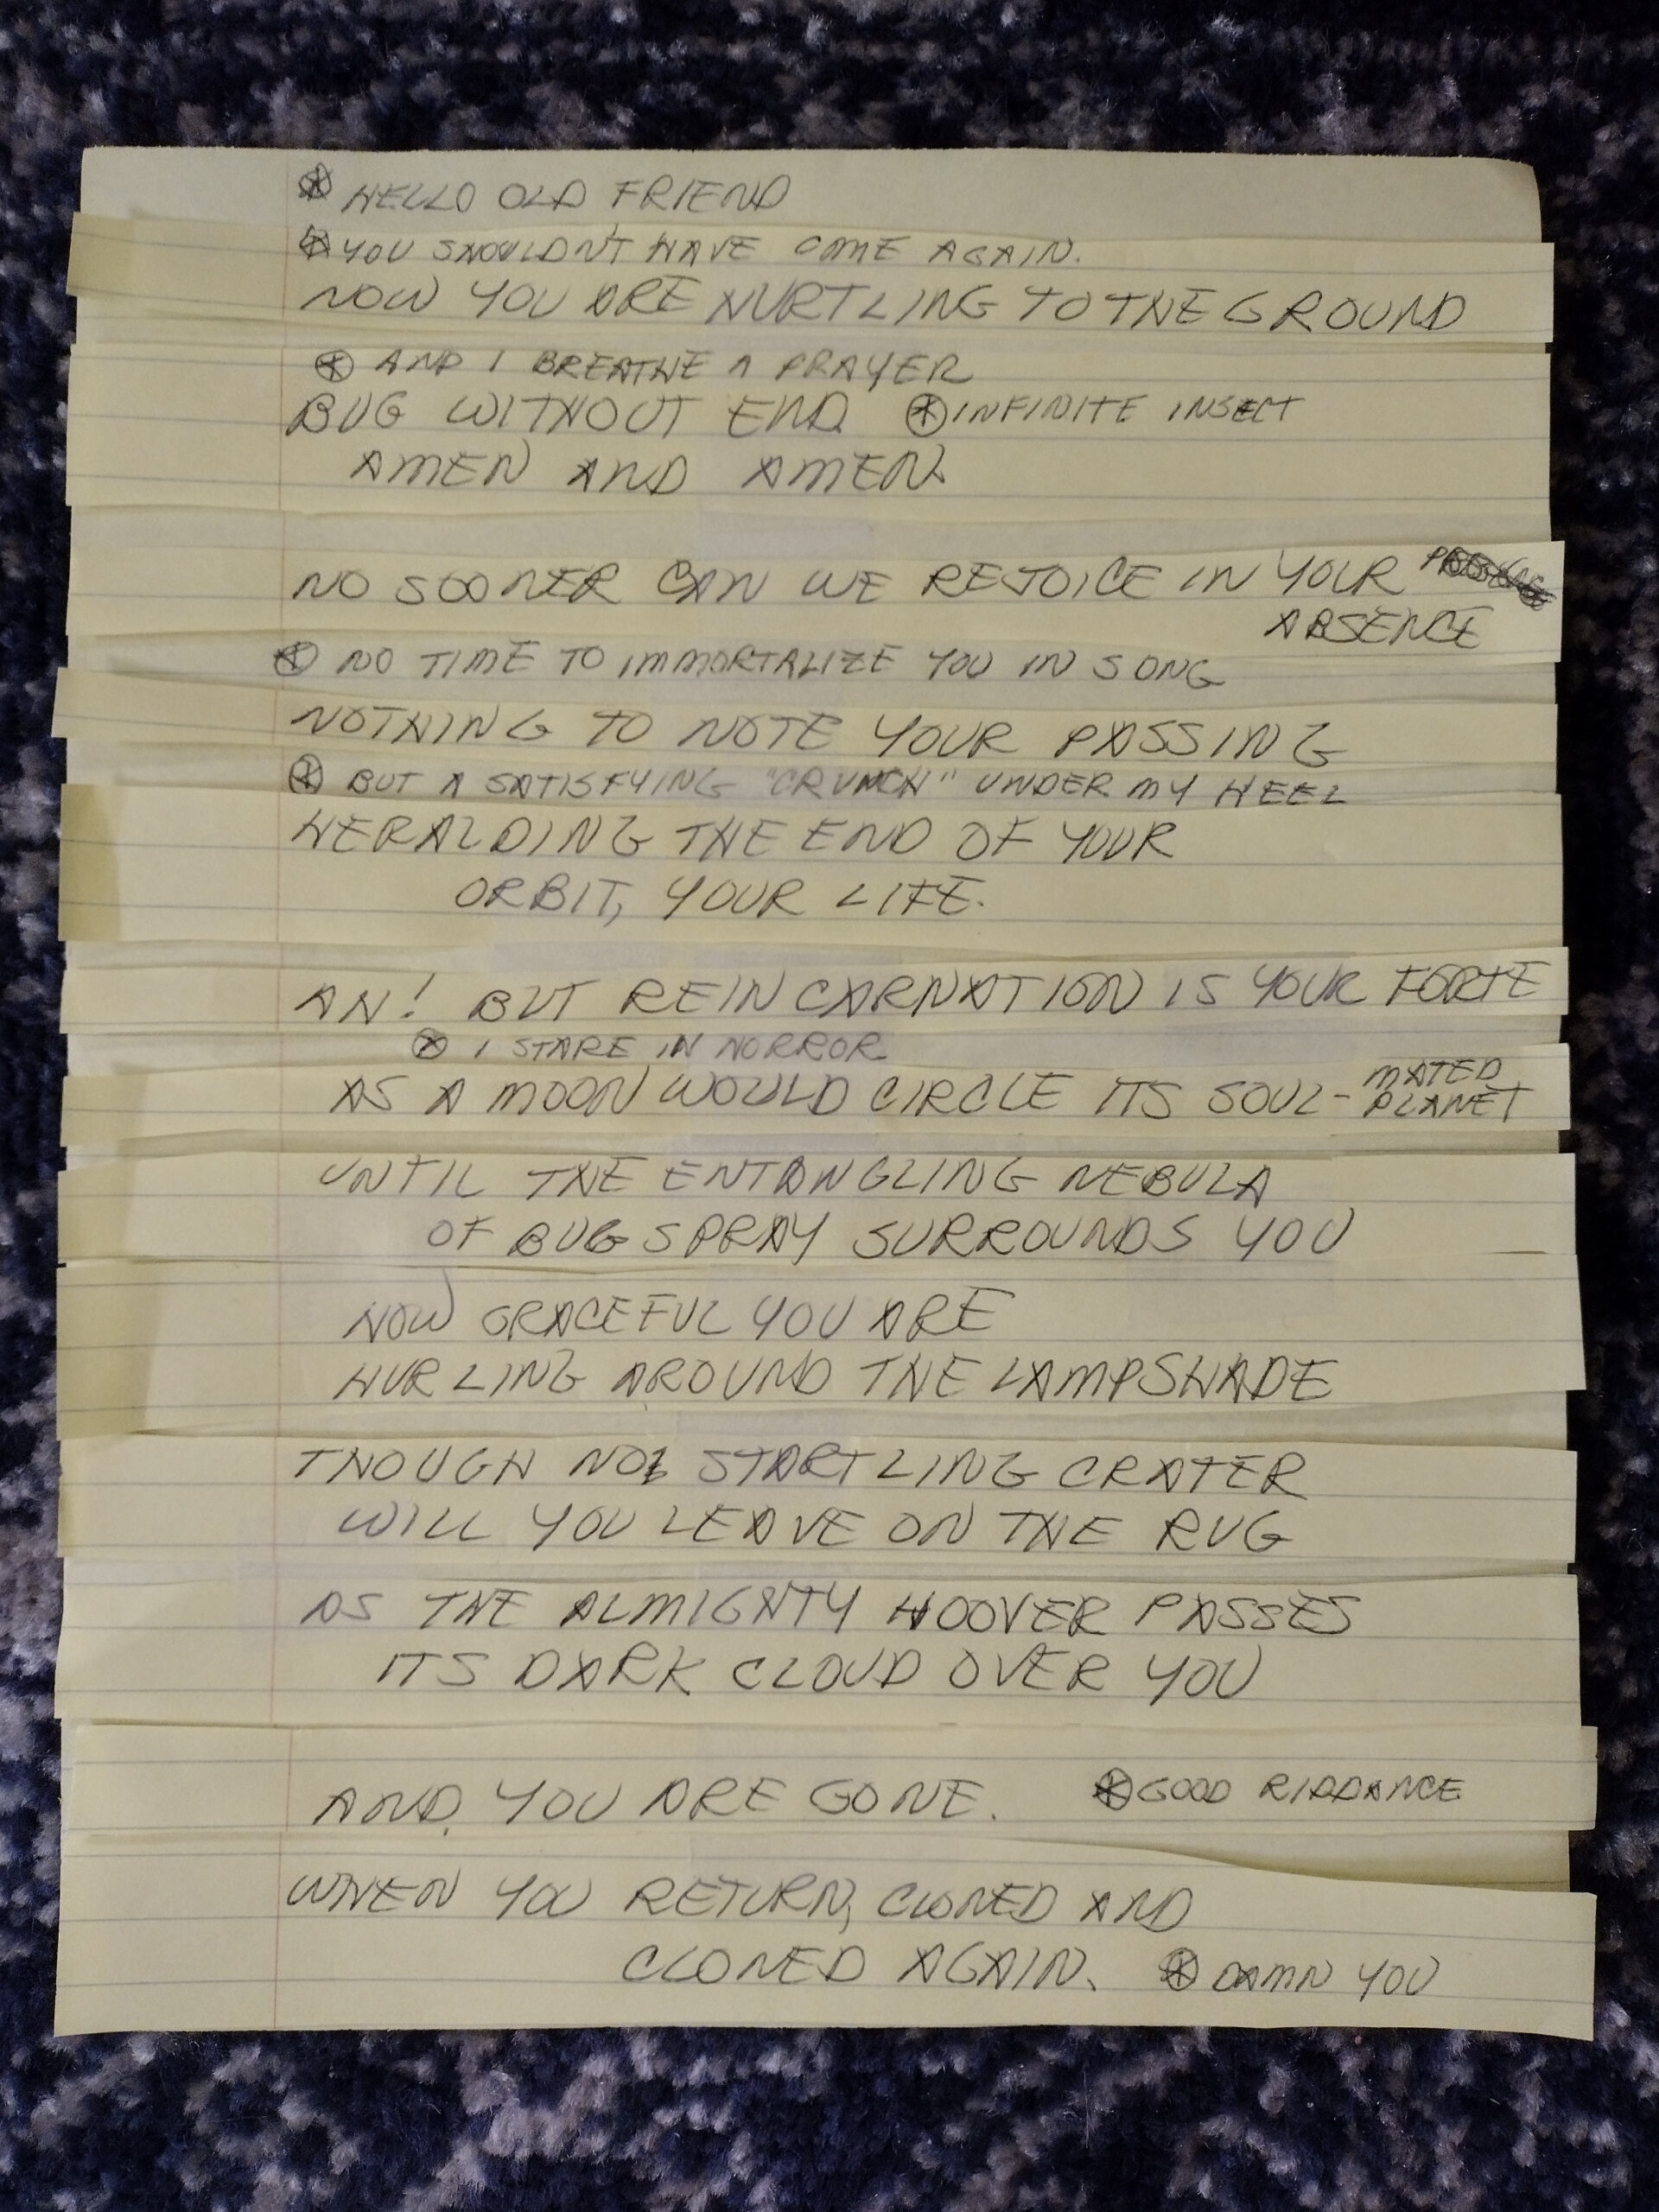 ⊛ HELLO OLD FRIEND
⊛ YOU SHOULDN'T HAVE COME AGAIN.
NOW YOU ARE HURTLING TO THE GROUND
⊛ AND I BREATHE A PRAYER
BUG WITHOUT END. ⊛ INFINITE INSECT
AMEN AND AMEN.
NO SOONER CAN WE REJOICE IN YOUR
ABSENCE
⊛ NO TIME TO IMMORTALIZE YOU IN SONG
NOTHING TO NOTE YOUR PASSING
⊛ BUT A SATISFYING "CRUNCH" UNDER MY HEEL
HERALDING THE END OF YOUR
ORBIT, YOUR LIFE.
AH! BUT REINCARNATION IS YOUR FORTE
⊛ I STARE IN HORROR
AS A MOON WOULD CIRCLE ITS SOUL-MATED
PLANET
UNTIL THE ENTANGLING NEBULA
OF BUG SPRAY SURROUNDS YOU
HOW GRACEFUL YOU ARE
HURLING AROUND THE LAMPSHADE
THOUGH NO STARTLING CRATER
WILL YOU LEAVE ON THE RUG
AS THE ALMIGHTY HOOVER PASSES
ITS DARK CLOUD OVER YOU
AND, YOU ARE GONE. ⊛ GOOD RIDDANCE
WHEN YOU RETURN, CLONED AND
CLONED AGAIN. ⊛ DAMN YOU